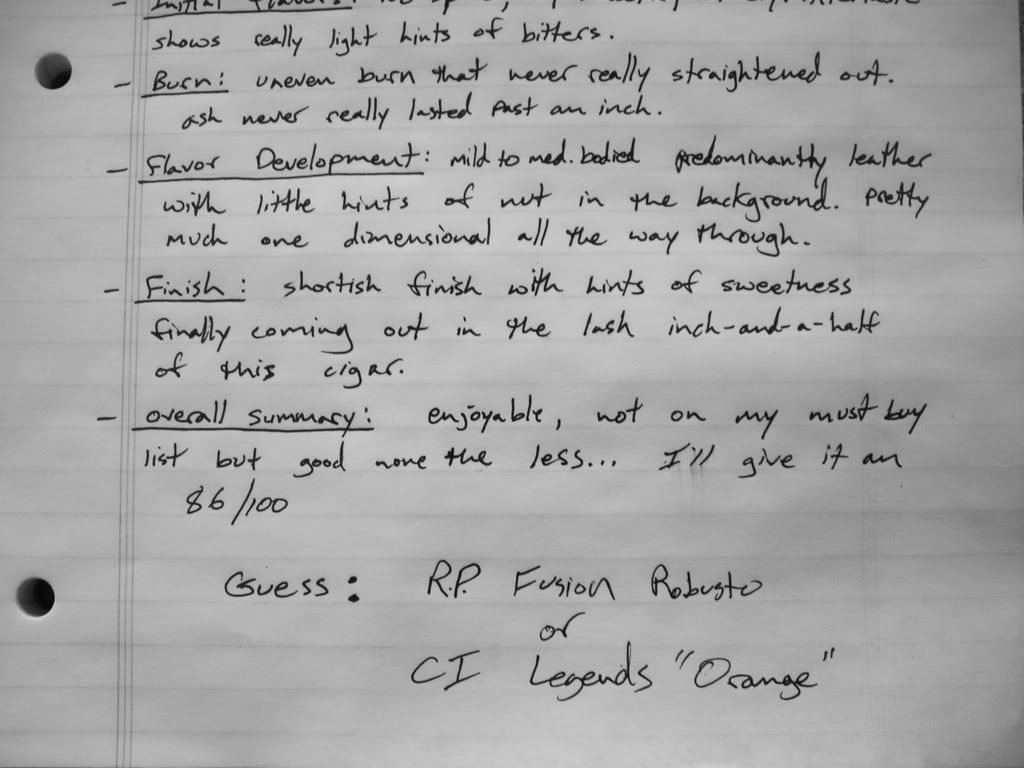 - Initial flavors:
shows really light hints of bitters.
- Burn: uneven burn that never really straightened out.
ash never really lasted past an inch.
- Flavor Development: mild to med. bodied predominantly leather
with little hints of nut in the background. pretty
much one dimensional all the way through.
- Finish: shortish finish with hints of sweetness
finally coming out in the lash inch-and-a-half
of this cigar.
- overall summary: enjoyable, not on my must buy
list but good none the less... I'll give it an
86/100
Guess: R.P. Fusion Robusto
or
CI Legends "Orange"